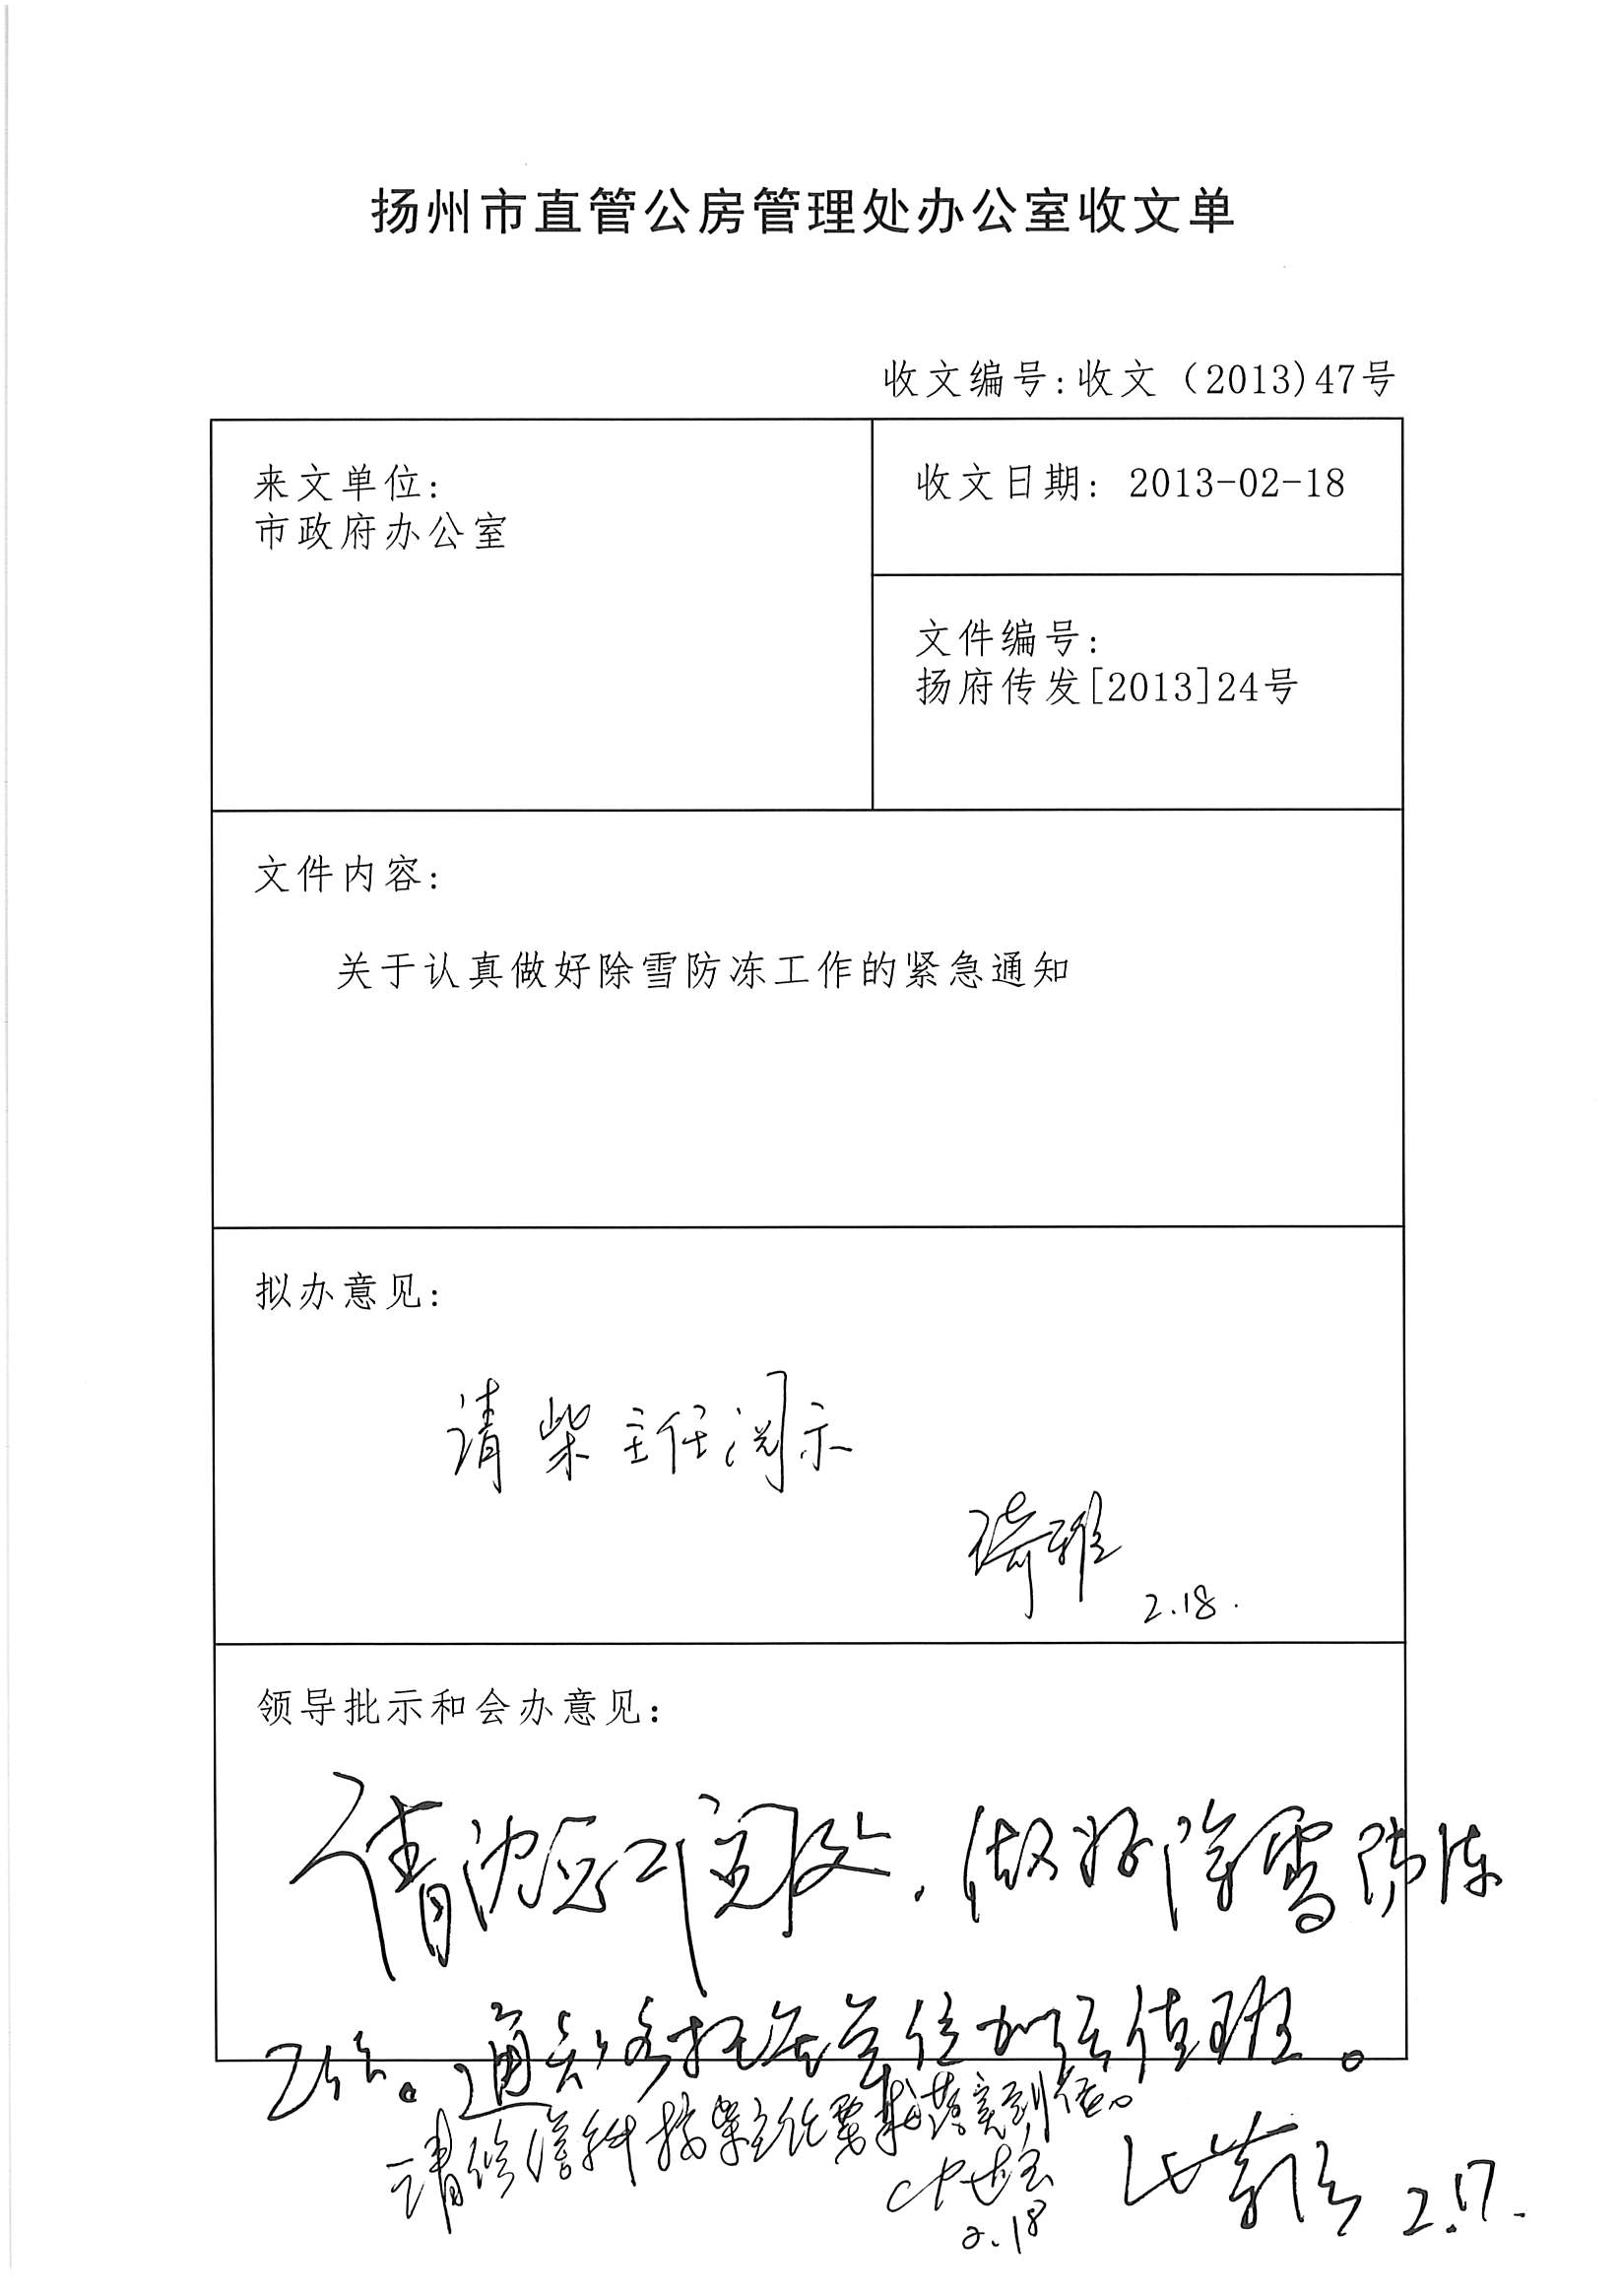 扬州市直管公房管理处办公室收文单
收文编号:收文（2013)47号
来文单位:
市政府办公室
收文日期: 2013-02-18
文件编号:
扬府传发[2013]24号
文件内容:
关于认真做好除雪防冻工作的紧急通知
拟办意见:
请柴主任阅示
2.18.
领导批示和会办意见:
请沈总工阅处，做好除雪防冻
工作。通知各托管单位加强值班。
请修缮科按柴主任要求落实到位。
2.18
2.17.